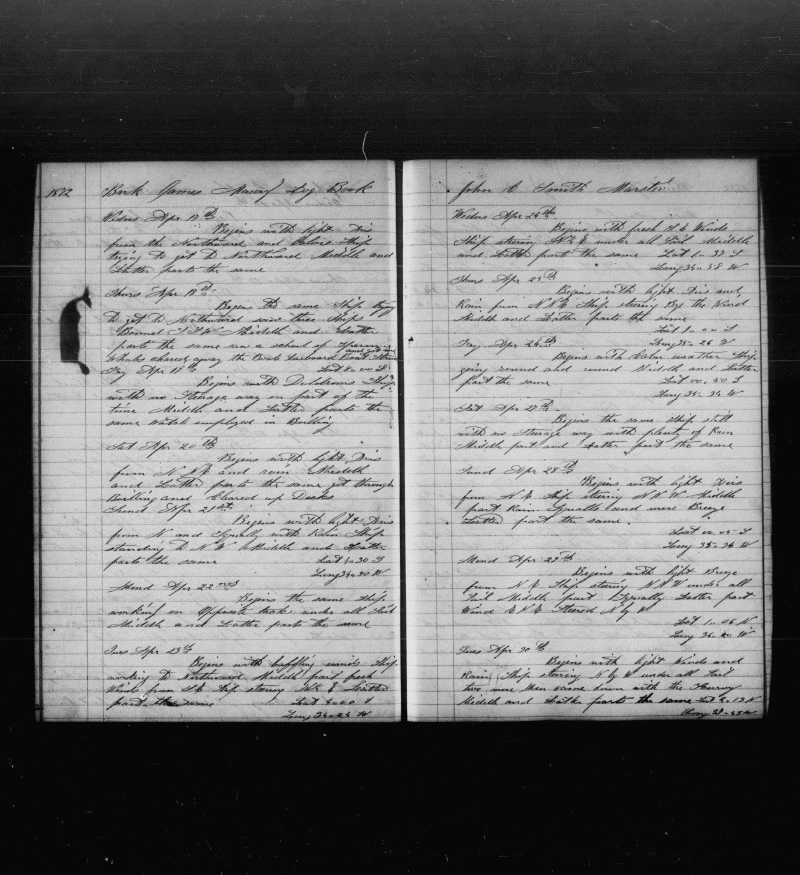 1872
Bark James Maury Log Book
Wedns Apr 17th
Begins with light Airs
from the Northward and Calms Ship
trying to get to Northward Middle and
Latter parts the same
Thurs Apr 18th
Begins the same Ship trying
to get to Northward saw three Ships
S S W Middle and Latter
parts the same saw a school of
Whales chased away the Boats
and
Lat 8.00 S
Fry Apr 19th
Begins with Doldrums Ship
with no Steerage way on part of the
time Middle and Latter parts the
same watch employed in Boiling
Sat Apr 20th
Begins with light Airs
from and rain Middle
and Latter parts the same got through
Boiling and Cleared up Decks
Sund Apr 21st
Begins with light Airs
from N and Squally with Rain Ship
standing to N W Middle and Latter
parts the same
Mond Apr 22nd
Begins the same Ship
working on Opposite tacks under all Sail
Middle and Latter parts the same
Tues Apr 23d
Begins with baffling winds Ship
working to Northward Middle part fresh
Winds from Ship steering Latter
part the same
John Smith Master
Wedns Apr 24th
Begins with fresh S E Winds
Ship steering under all Sail Middle
and Latter parts the same
Thurs Apr 25th
Begins with light Airs and
Rain from Ship steering By the Wind
Middle and Latter parts the same
Fry Apr 26th
Begins with Calm weather Ship
going round and round Middle and Latter
part the same Lat 00.50 S
Sat Apr 27th
Begins the same Ship still
with no Steerage way with plenty of Rain
Middle part and Latter part the same
Sund Apr 28th
Begins with light Airs
from N E Ship steering N N W Middle
part Rain Squalls and more Breeze
Latter part the same
Long 35-36 W
Mond Apr 29th
Begins with light Breeze
from N E Ship steering N N W under all
Sail Middle part Squally Latter part
Wind Steered N by W
Lat 1-06 N
Tues Apr 30th
Begins with light Winds and
Rain Ship steering N by W under all Sail
two more Men came down with the Scurvy
Middle and Latter parts the same